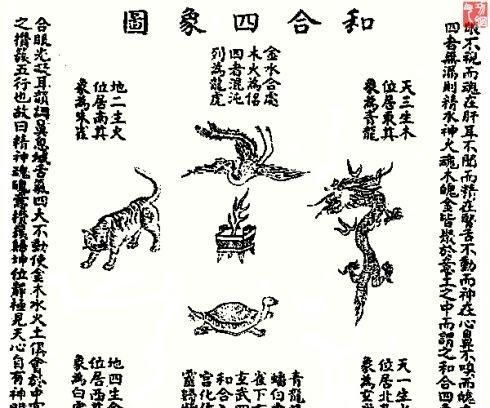 和合四象圖
眼不視而魂在肝耳不聞而精在腎舌不動而神在心鼻不嗅而
四者無漏則精水神火魂木魄金皆聚於意土之中而謂之和合四
天三生木
位居東真
象為青龍
金水合處
木火為侶
四者混沌
列為龍虎
地二生火
位居南真
象為朱雀
天一生
位居北
象為玄
青龍
蟠白
雀下
玄武四
和合
宮化作
地四生金
位居西
象為白
合眼光凝耳韻調鼻息緘舌氣四大不動使金木水火土俱會於中宮
之攢簇五行也故曰精神魂魄意攢簇歸坤位靜極見天心自有神明